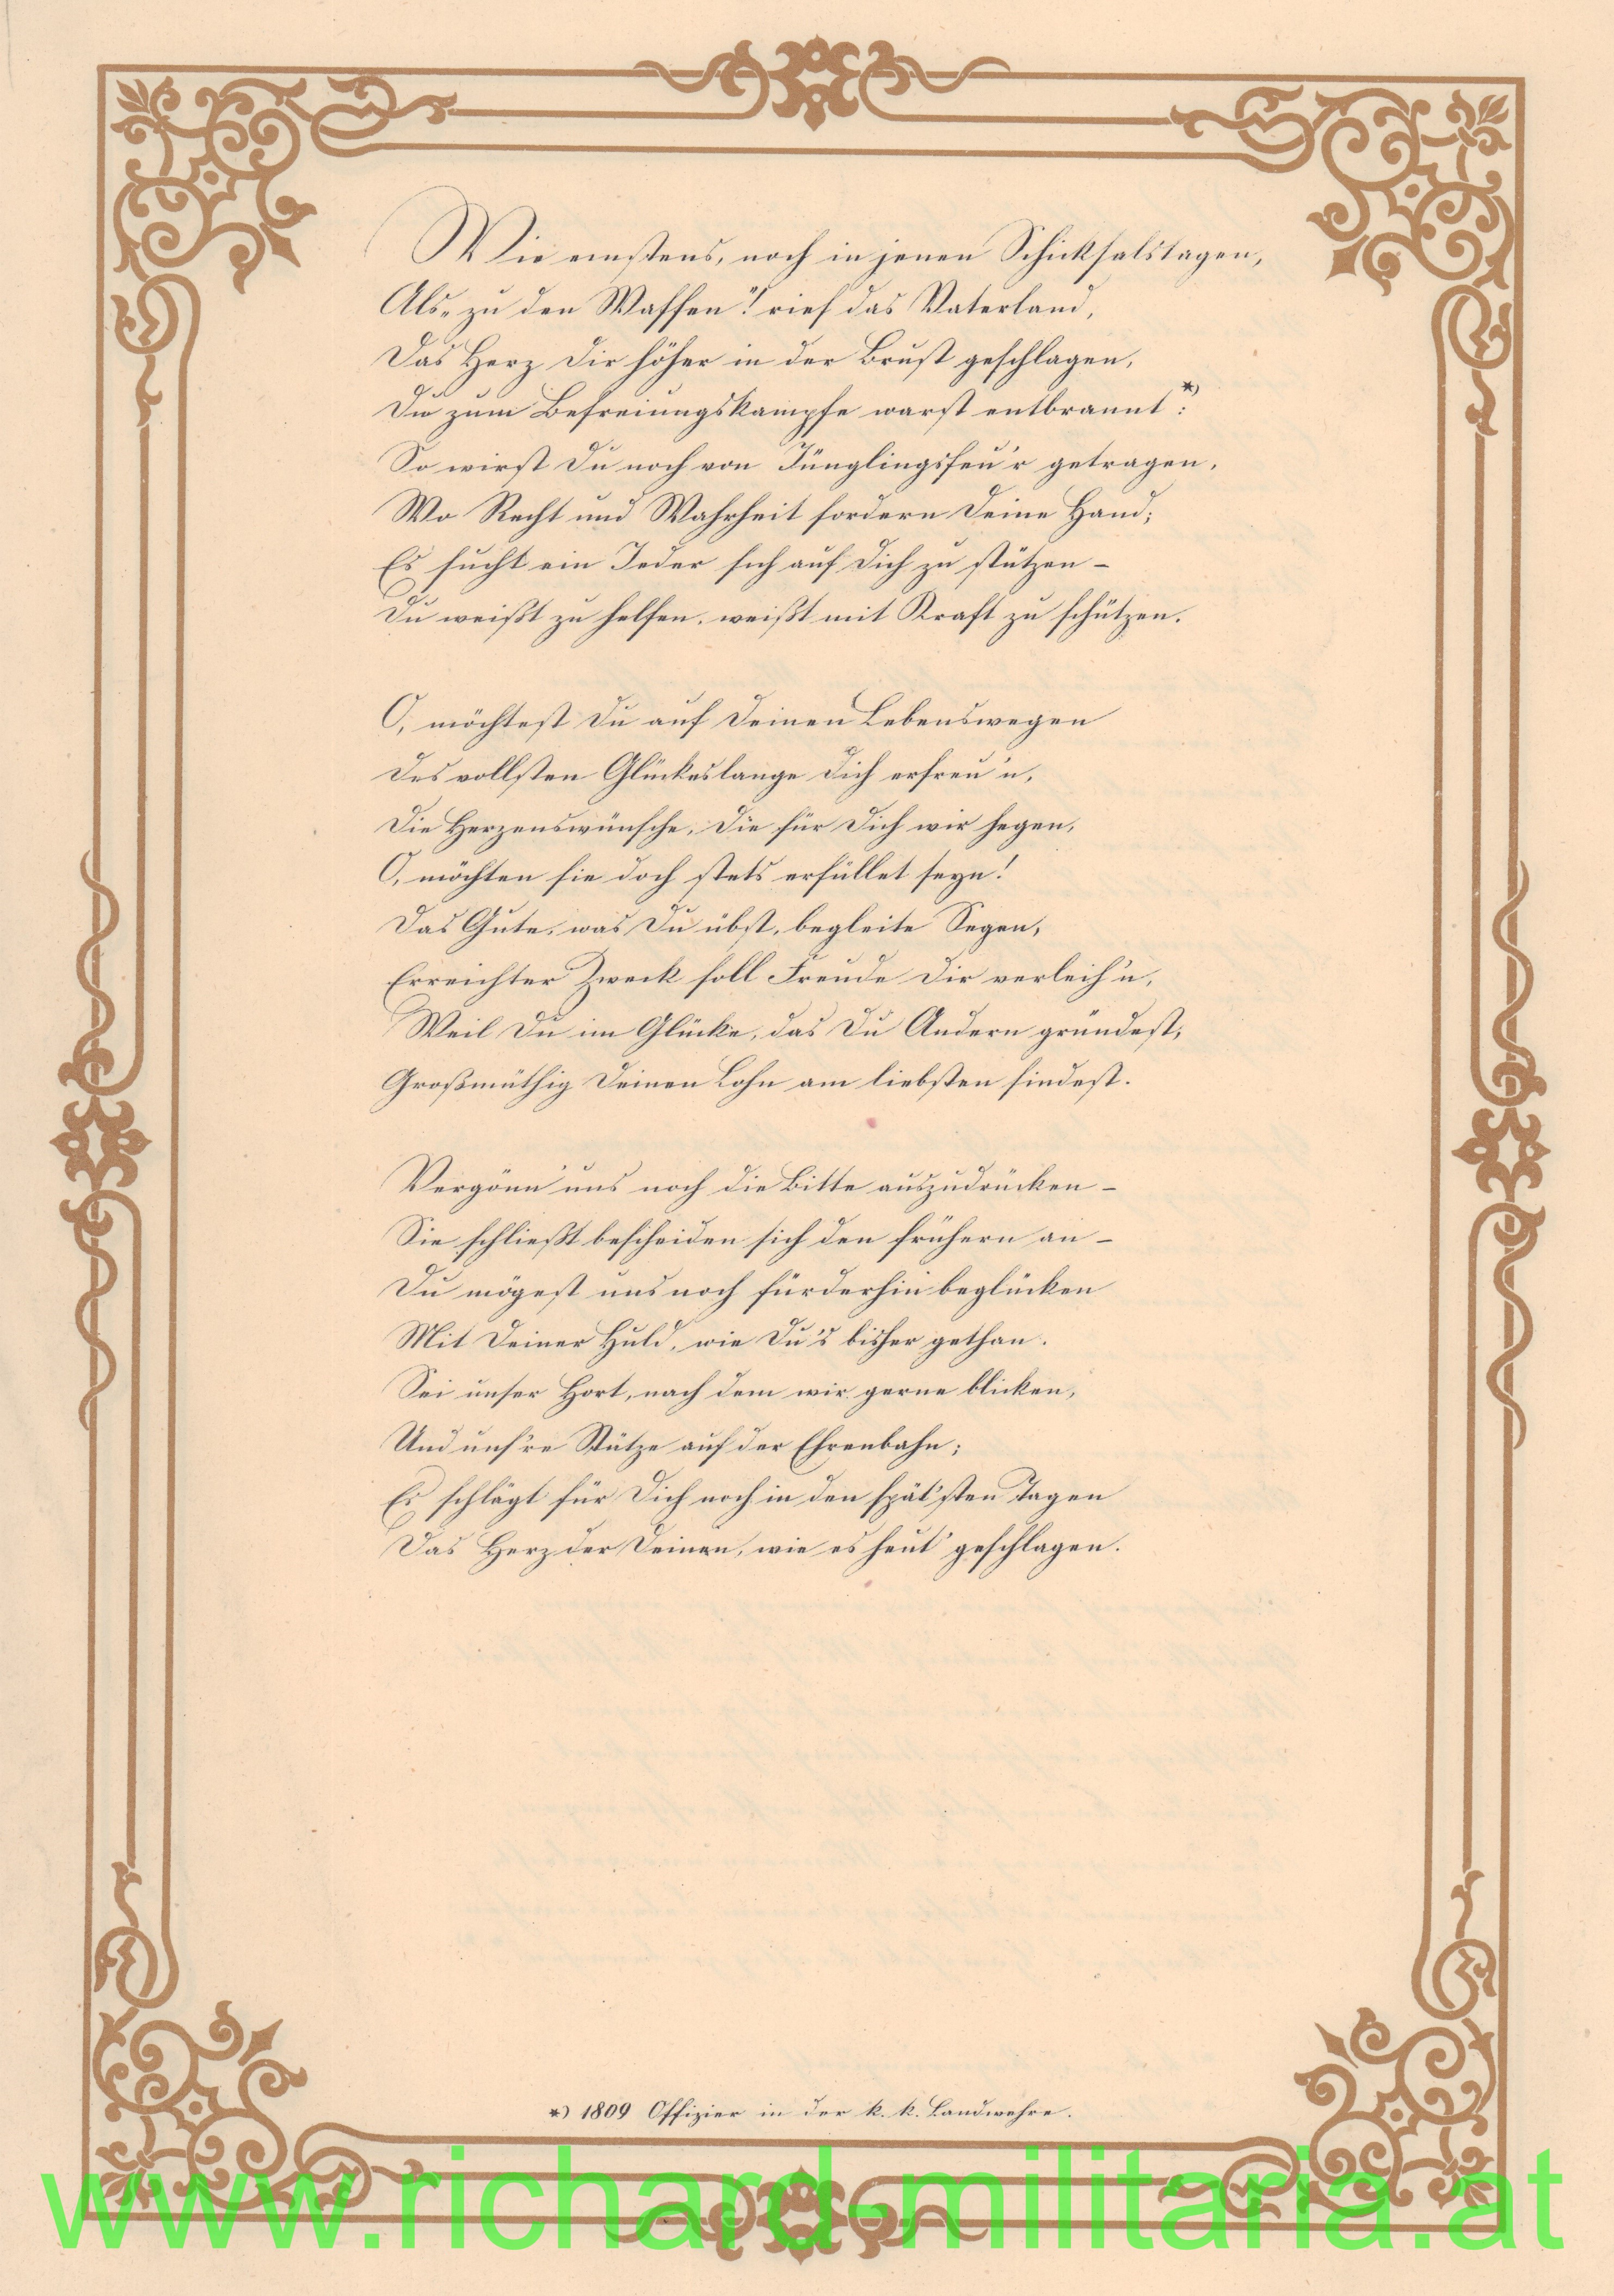 Wie einstens, noch in jenen Schicksalstagen,
Als „zu den Waffen“! rief das Vaterland,
Das Herz Dir höher in der Brust geschlagen,
Du zum Befreiungskampfe warst entbrannt *):
So wirst Du noch von Jünglingsfeu'r getragen,
Wo Recht und Wahrheit fordern Deine Hand;
Es sucht ein Jeder sich auf Dich zu stützen –
Du weißt zu helfen, weißt mit Kraft zu schützen.
O, möchtest Du auf Deinen Lebenswegen
Des vollsten Glückes lange Dich erfreu'n,
Die Herzenswünsche, die für Dich wir hegen,
O, möchten sie doch stets erfüllet seyn!
Das Gute, was Du übst, begleite Segen,
Erreichter Zweck soll Freude Dir verleih'n,
Weil Du im Glücke, das Du Andern gründest,
Großmüthig Deinen Lohn am liebsten findest.
Vergönn' uns noch die Bitte auszudrücken –
Sie schließt bescheiden sich den frühern an –
Du mögest uns noch fürderhin beglücken
Mit Deiner Huld, wie Du's bisher gethan.
Sei unser Hort, nach dem wir gerne blicken,
Und uns're Stütze auf der Ehrenbahn;
Es schlägt für Dich noch in den spät'sten Tagen
Das Herz der Deinen, wie es heut' geschlagen.
*) 1809 Offizier in der k. k. Landwehre.
www.richard-militaria.at